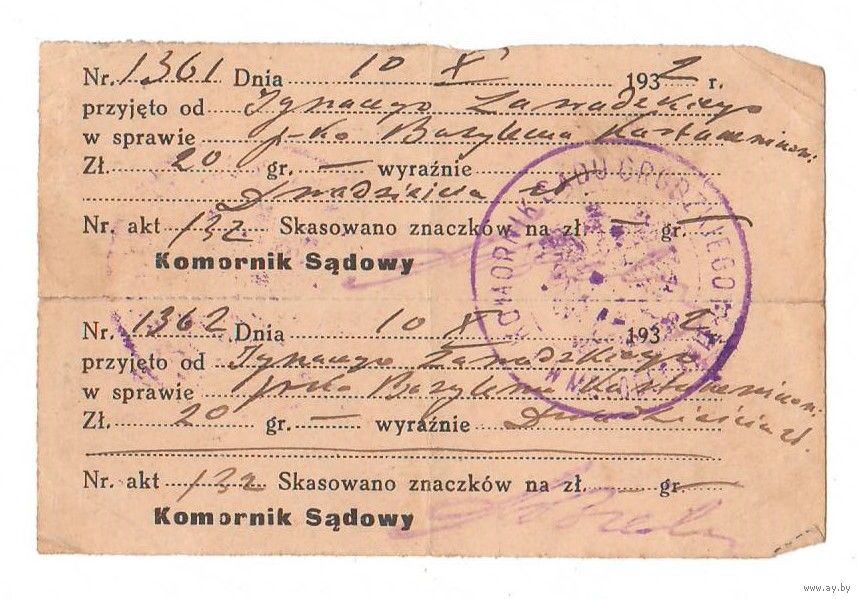 Nr. 1361 Dnia 10 X 1932 r.
przyjęto od Ignacego Zawadzkiego
w sprawie p-ko Bazylemu
Zł. 20 gr. — wyraźnie
Dwadzieścia zł
Nr. akt 132 Skasowano znaczków na zł. — gr. —
Komornik Sądowy
KOMORNIK SĄDU GRODZKIEGO
Nr. 1362 Dnia 10 X 1932 r.
przyjęto od Ignacego Zawadzkiego
w sprawie p-ko Bazylemu
Zł. 20 gr. — wyraźnie Dwadzieścia zł.
Nr. akt 132 Skasowano znaczków na zł. — gr. —
Komornik Sądowy
www.ay.by